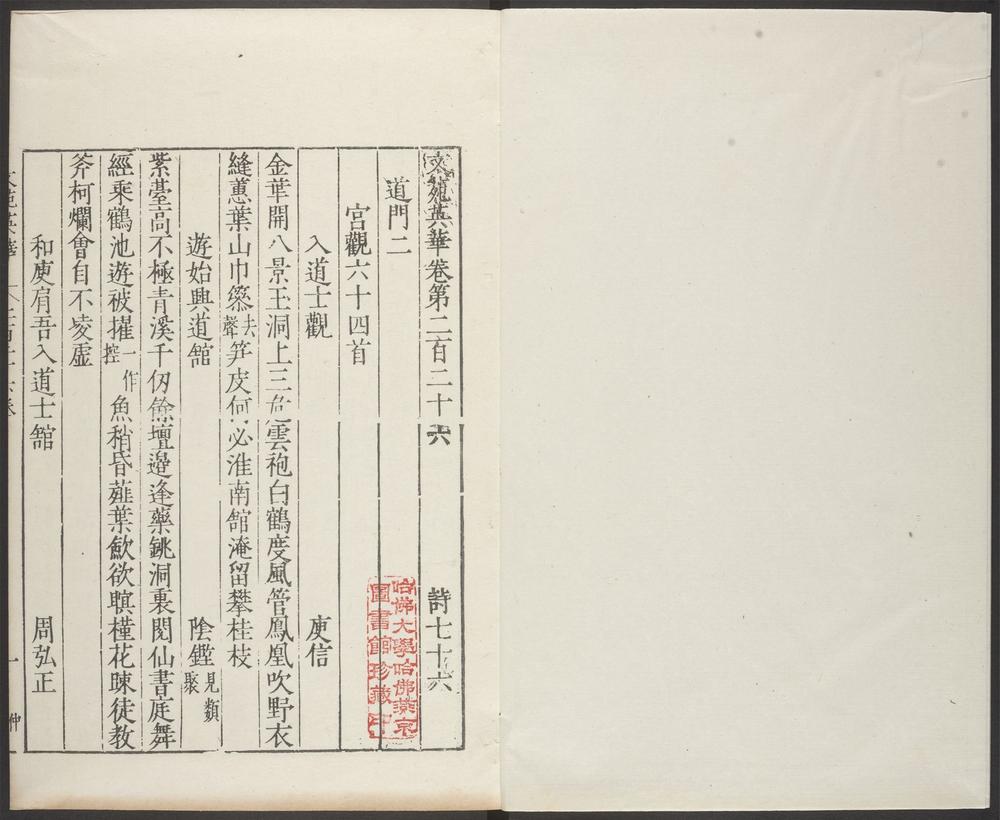 文苑英華卷第二百二十六 詩七十六
道門二
宮觀六十四首
入道士觀 庾信
金華開八景玉洞上三危雲袍白鶴度風管鳳凰吹野衣
縫蕙葉山巾篸去聲笋皮何必淮南舘淹留攀桂枝
遊始興道舘 陰鏗見類聚
紫臺高不極青溪千仞餘壇邉逢藥銚洞裏閱仙書庭舞
經乘鶴池遊被摧一作控魚稍昏蕹葉歛欲暝槿花踈徒教
斧柯爛會自不凌虚
和庾肩吾入道士舘 周弘正
文苑英華
一
仲
哈佛大學哈佛燕京
圖書館珍藏印